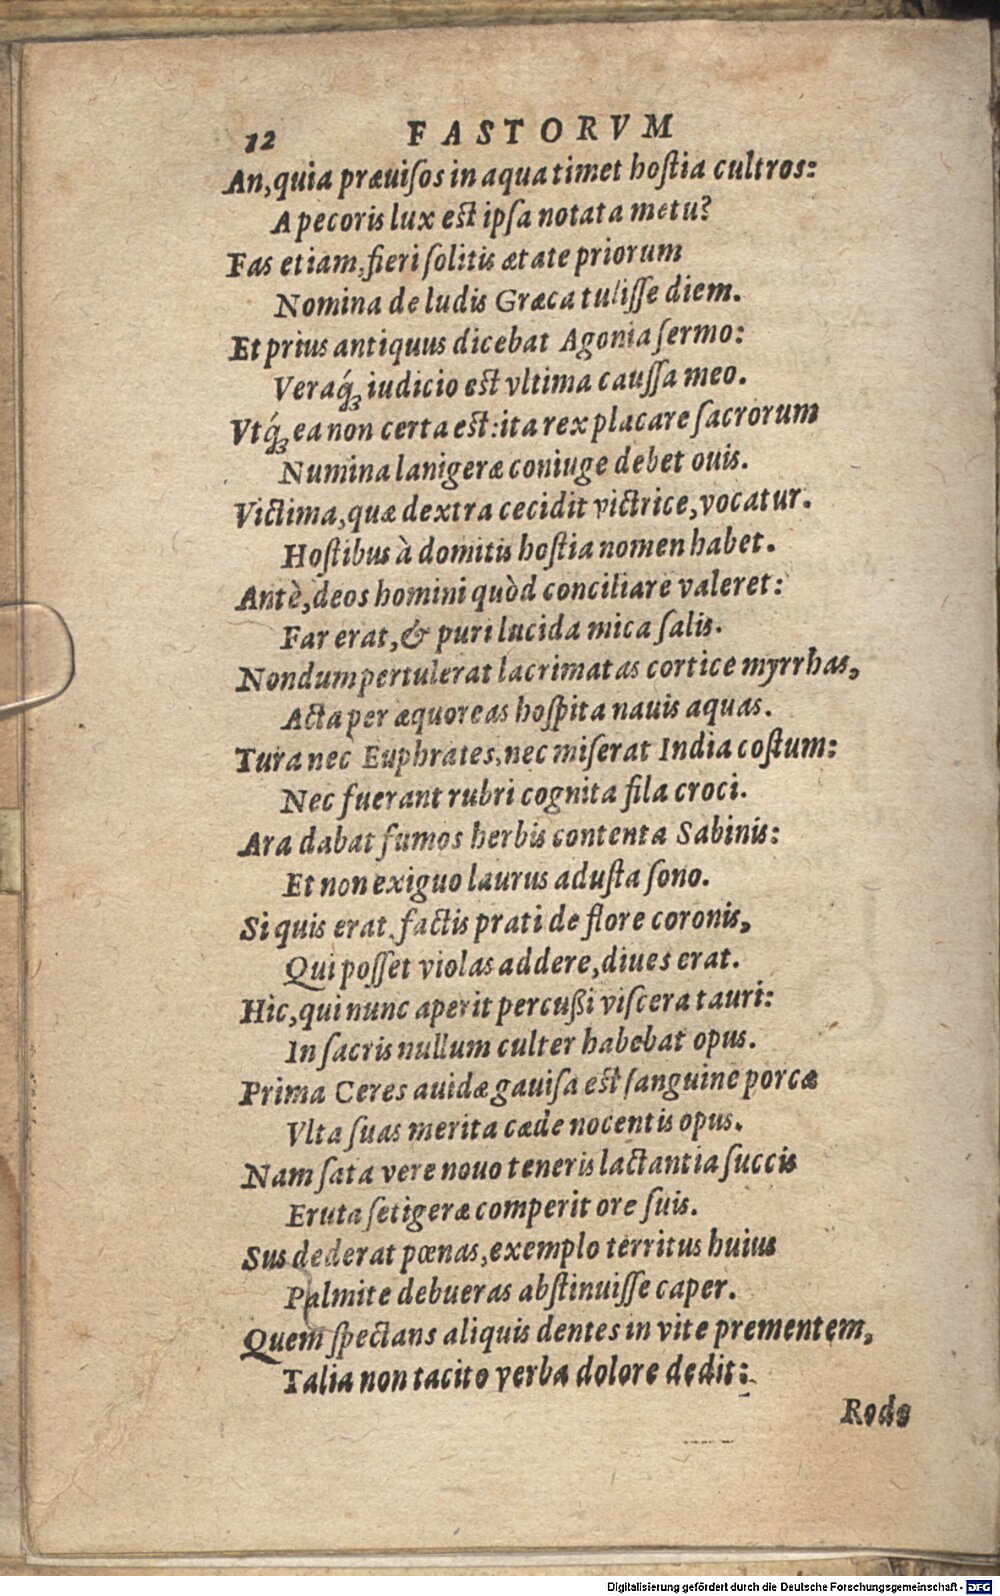 12 FASTORVM
An, quia præuiſos in aqua timet hoſtia cultros:
A pecoris lux est ipſa notata metu?
Fas etiam, fieri ſolitis ætate priorum
Nomina de ludis Græca tuliſſe diem.
Et prius antiquus dicebat Agonia ſermo:
Veraq́ꝫ iudicio est vltima cauſſa meo.
Vtq́ꝫ ea non certa est: ita rex placare ſacrorum
Numina lanigeræ coniuge debet ouis.
Victima, quæ dextra cecidit victrice, vocatur.
Hoſtibus à domitis hoſtia nomen habet.
Antè, deos homini quòd conciliare valeret:
Far erat, & puri lucida mica ſalis.
Nondum pertulerat lacrimatas cortice myrrhas,
Acta per æquoreas hoſpita nauis aquas.
Tura nec Euphrates, nec miſerat India coſtum:
Nec fuerant rubri cognita fila croci.
Ara dabat fumos herbis contenta Sabinis:
Et non exiguo laurus aduſta ſono.
Si quis erat, factis prati de flore coronis,
Qui poſſet violas addere, diues erat.
Hic, qui nunc aperit percußi viſcera tauri:
In ſacris nullum culter habebat opus.
Prima Ceres auidæ gauiſa est ſanguine porcæ
Vlta ſuas merita cæde nocentis opus.
Nam ſata vere nouo teneris lactantia ſuccis
Eruta ſetigeræ comperit ore ſuis.
Sus dederat pœnas, exemplo territus huius
Palmite debueras abſtinuiſſe caper.
Quem ſpectans aliquis dentes in vite prementem,
Talia non tacito verba dolore dedit:
Rode
Digitalisierung gefördert durch die Deutsche Forschungsgemeinschaft - DFG